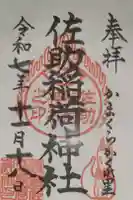 奉拝
かまくらかくれ里
佐助稲荷神社
令和七年十一月十八日